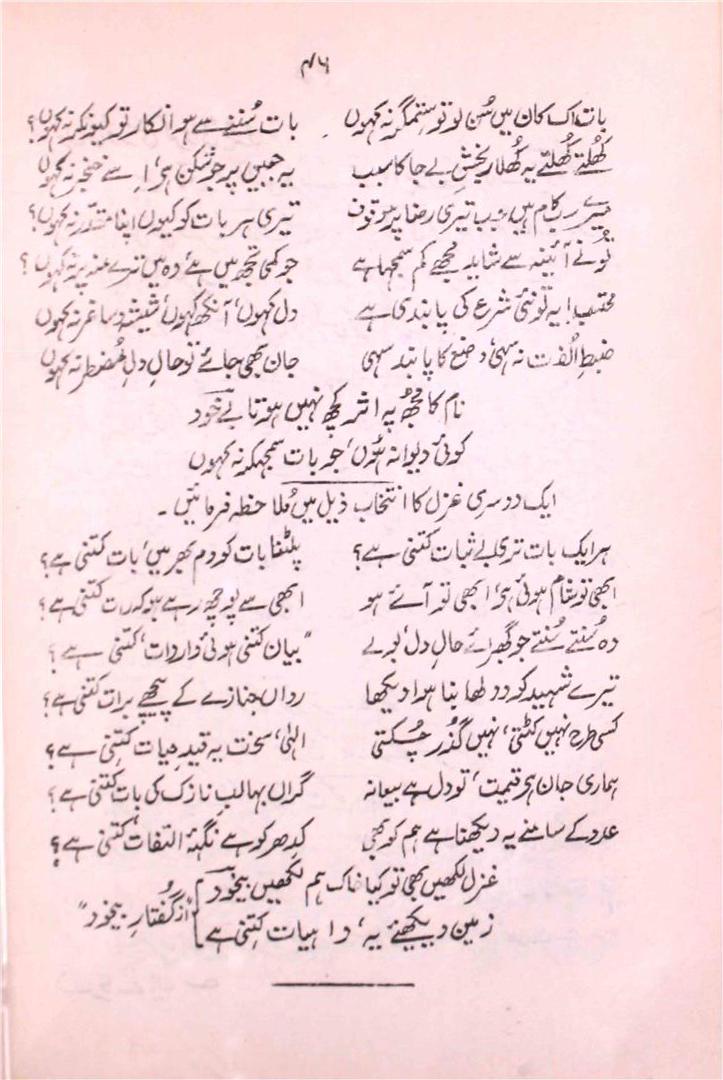 ۴۶
بات اک کان میں سُن لو تو ستمگر نہ کہوں بات سُننے سے ہو انکار تو کیونکر نہ کہوں؟
کُھلتے کُھلتے یہ کُھلا رنجشِ بے جا کا سبب یہ جبیں پر جو شکن ہی، اِسے خنجر نہ کہوں
میرے سب کام ہیں جب تیری رضا پر موقوف تیری ہر بات کو کیوں اپنا مقدّر نہ کہوں؟
تُو نے آئینہ سے شاید مجھے کم سمجھا ہے جو کمی تجھ میں ہے، وہ میں ترے منہ پر نہ کہوں؟
محتسب! یہ تو نئی شرع کی پابندی ہے دل کہوں، آنکھ کہوں، شیشہ و ساغر نہ کہوں
ضبطِ اُلفت نہ سہی، وضع کا پابند سہی جان بھی جائے تو حالِ دلِ مُضطر نہ کہوں
نام کا مجھ پہ اثر کچھ نہیں ہوتا بے خود
کوئی دیوانہ ہُوں، جو بات سمجھکر نہ کہوں
ایک دوسری غزل کا انتخاب ذیل میں مُلاحظہ فرمائیں۔
ہر ایک بات تری بے ثبات کتنی ہے؟ پلٹنا بات کو دم بھر میں، بات کتنی ہے؟
ابھی تو شام ہوئی ہی، ابھی تو آئے ہو ابھی سے پوچھ رہے ہو کہ رات کتنی ہے؟
وہ سُنتے سُنتے جو گھبرائے حالِ دل، بولے "بیان کتنی ہوئی، واردات، کتنی ہے؟
تیرے شہید کو دولھا بنا ہوا دیکھا رواں جنازے کے پیچھے برات کتنی ہے؟
کسی طرح نہیں کٹتی، نہیں گذر چُکتی الہٰی، سخت یہ قیدِ حیات کتنی ہے؟
ہماری جان ہی قیمت، تو دل ہے بیعانہ گراں بہا لبِ نازک کی بات کتنی ہے؟
عدو کے سامنے یہ دیکھنا ہے ہم کو بھی کدھر کو ہے نگہۂ التفات، کتنی ہے؟
غزل لکھیں بھی تو کیا خاک ہم لکھیں بیخود
زمین دیکھئے یہ، واہیات کتنی ہے "از گُفتارِ بیخود"